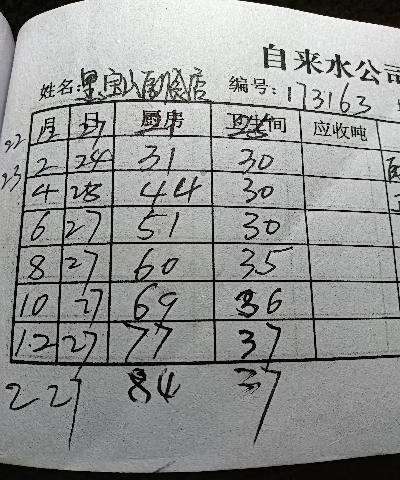 自来水公司
姓名: 黑宝山 店 编号: 173163
22 月 日 27 厨房 卫生间 25 应收吨
23 2 24 31 30
4 28 44 30
6 27 51 30
8 27 60 35
10 27 69 36
12 27 77 37
2 27 84 37